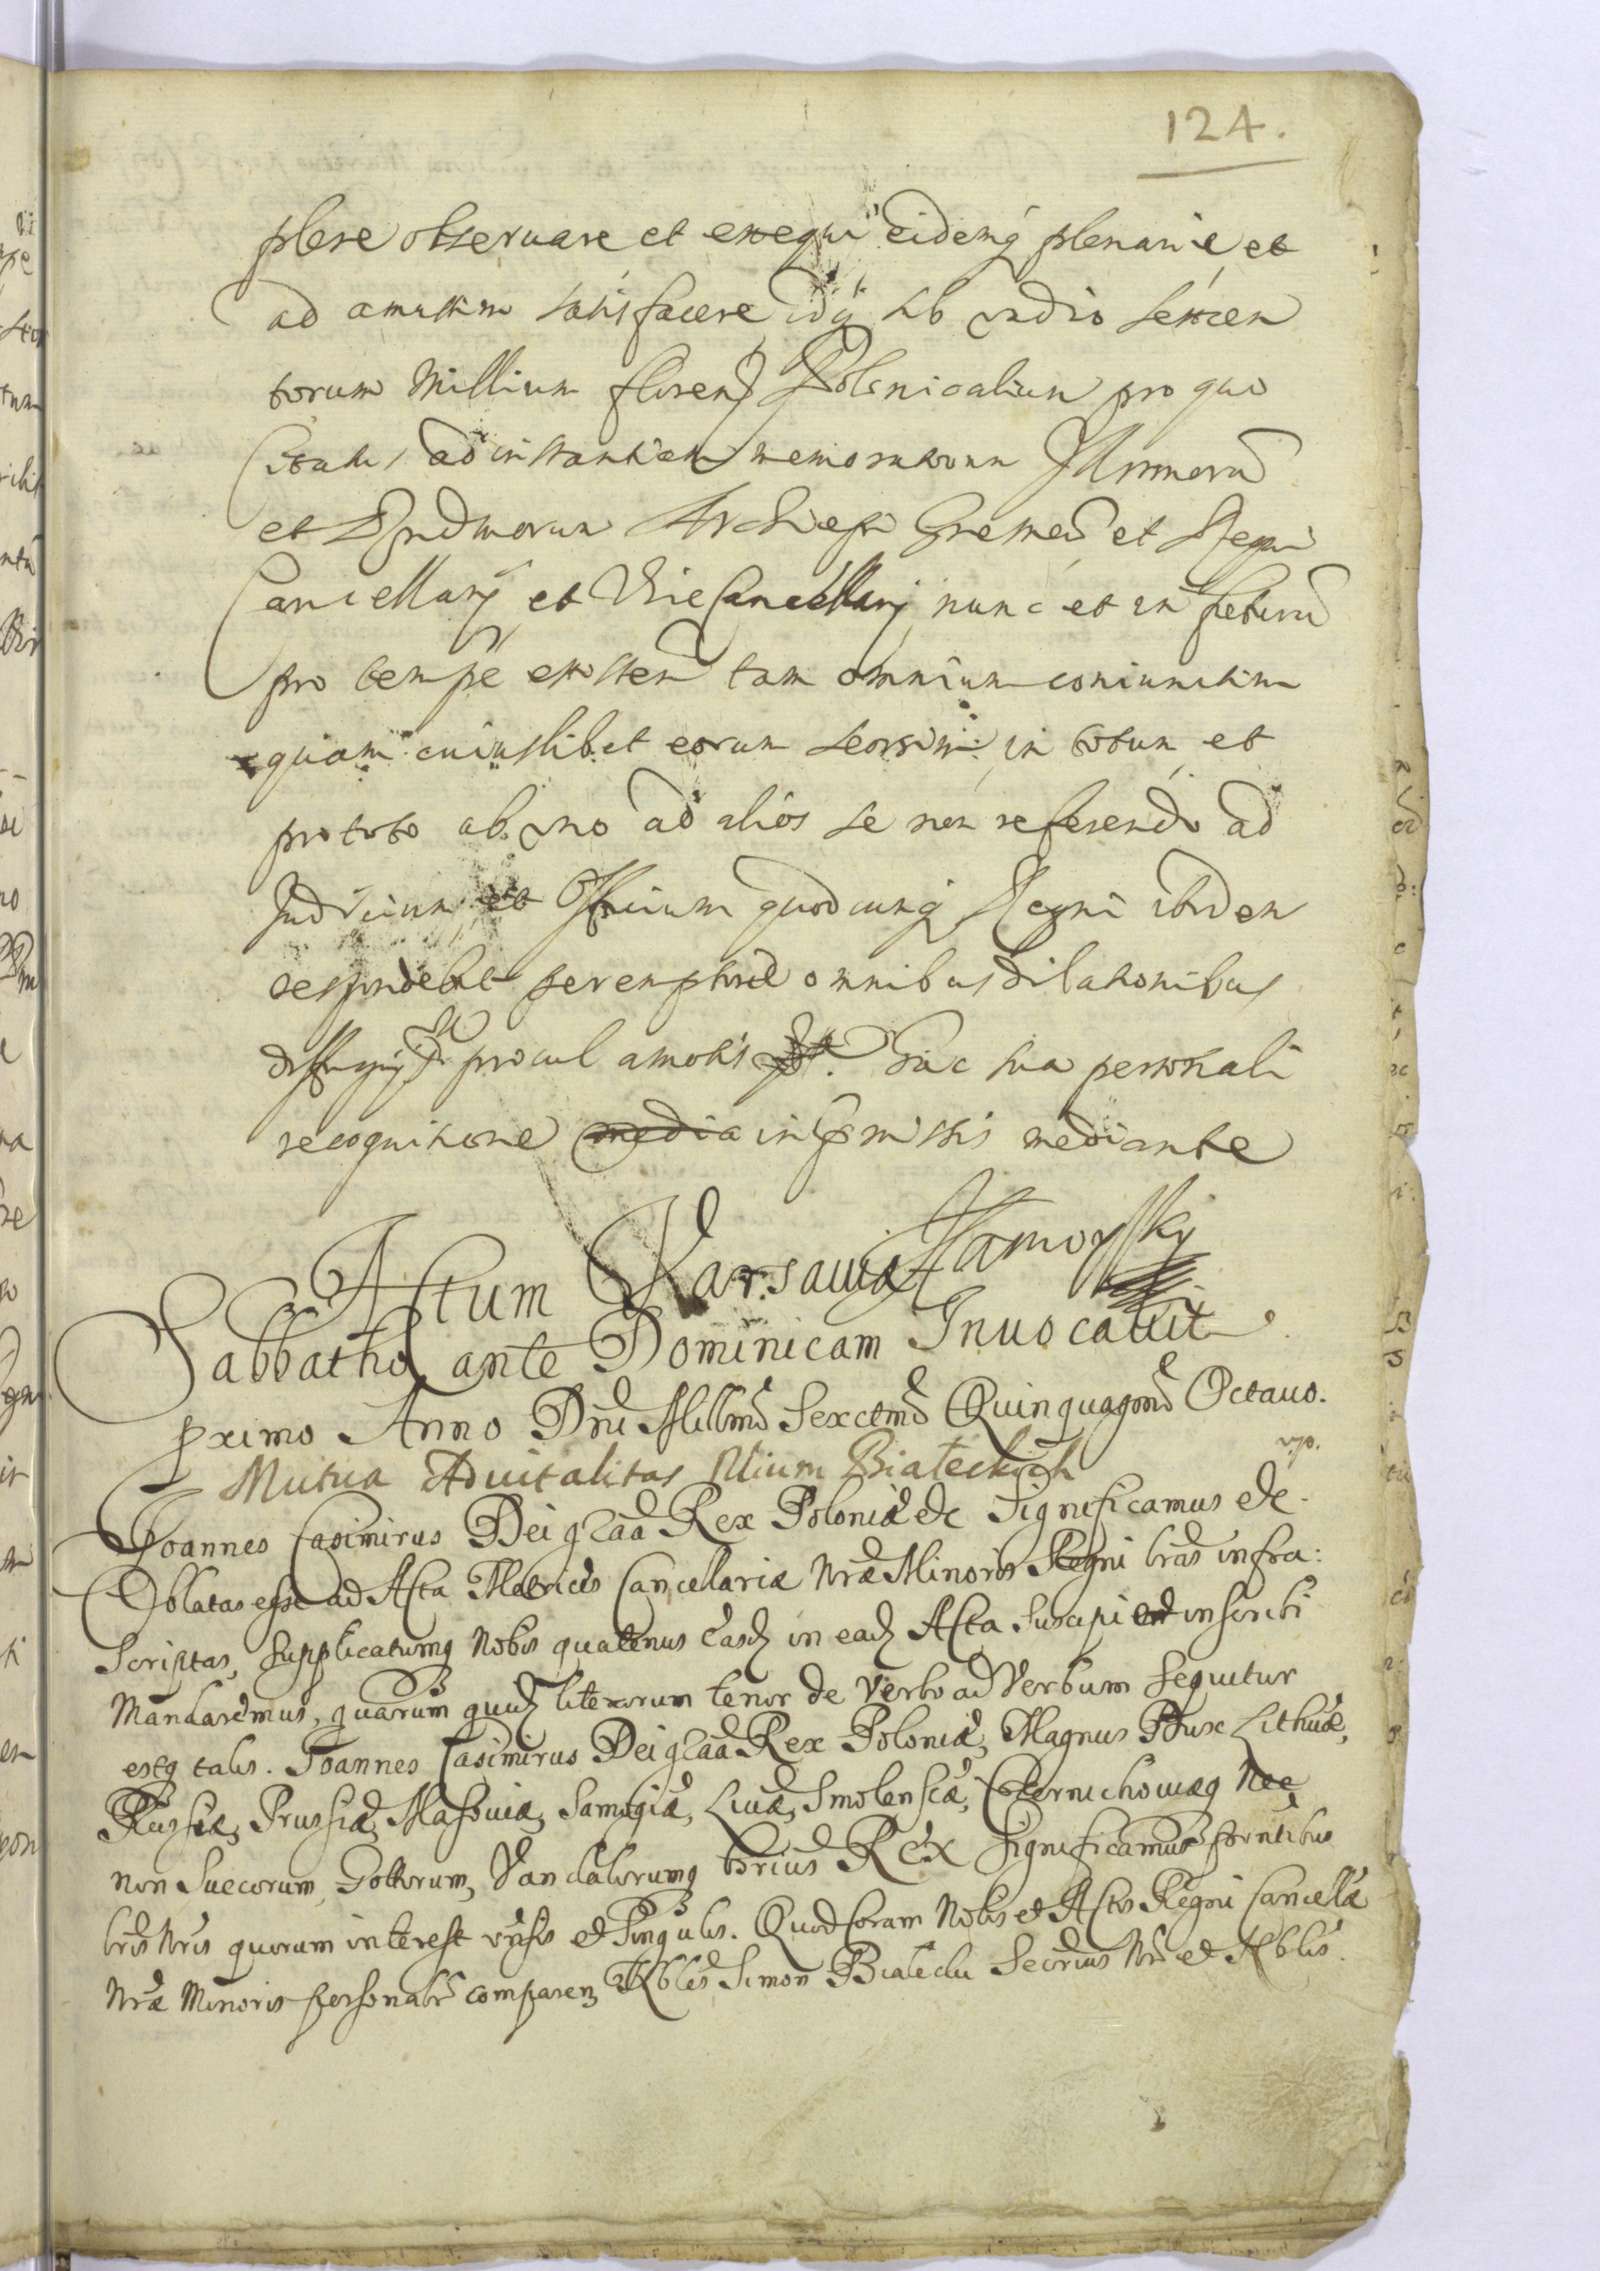 124.
plere observare et exequi eidemq plenarie et
ad amussim satisfacere idq sub vadio sexcen
torum Millium floren Polonicalium pro quo
Citatus ad instantiam memoratorum Illrmorū
et Rndmorum Archiepi Gnesneń et Regni
Cancellarij et ViceCancellarij nunc et in futurū
pro tempe existeñ tam omnium coniunctim
quam cuiuslibet eorum seorsim in totum et
pro toto ab uno ad alios se non referendo ad
Judicium et Officium quodcunq Regni ibidem
respondebit peremptorie omnibus dilationibus
diffugijsq procul amotis hac sua personali
recognitione media in pmissis mediante
Zamoyski
Actum Varsaviæ
Sabbatho ante Dominicam Invocavit
pximo Anno Dni Millmo Sexctmo Quinquagmo Octavo.
Mutua Advitalitas Nlium Białeckich
Joannes Casimirus Dei graã Rex Poloniæ etc Significamus etc
Oblatas esse ad Acta Metrices Cancellariæ Nræ Minoris Regni lras infra:
Scriptas, supplicatumq Nobis quatenus easd in ead Acta suscipi et inscribi
Mandaremus, quarum quid literarum tenor de Verbo ad Verbum sequitur
estq talis. Joannes Casimirus Dei graã Rex Poloniæ, Magnus Dux Lithuæ,
Russiæ, Prussiæ, Masoviæ, Samogiæ, Livæ, Smolensciæ, Czernichoviæq Nec
non Suecorum, Gottorum, Vandalorumq hærius Rex Significamus pntibus
lris Nris quorum interest vnsis et singulis. Quod coram Nobis et Actis Regni Cancellæ
Nræ Minoris personalr comparen Nobles Simon Bialecki Secrius Nr et Noblis